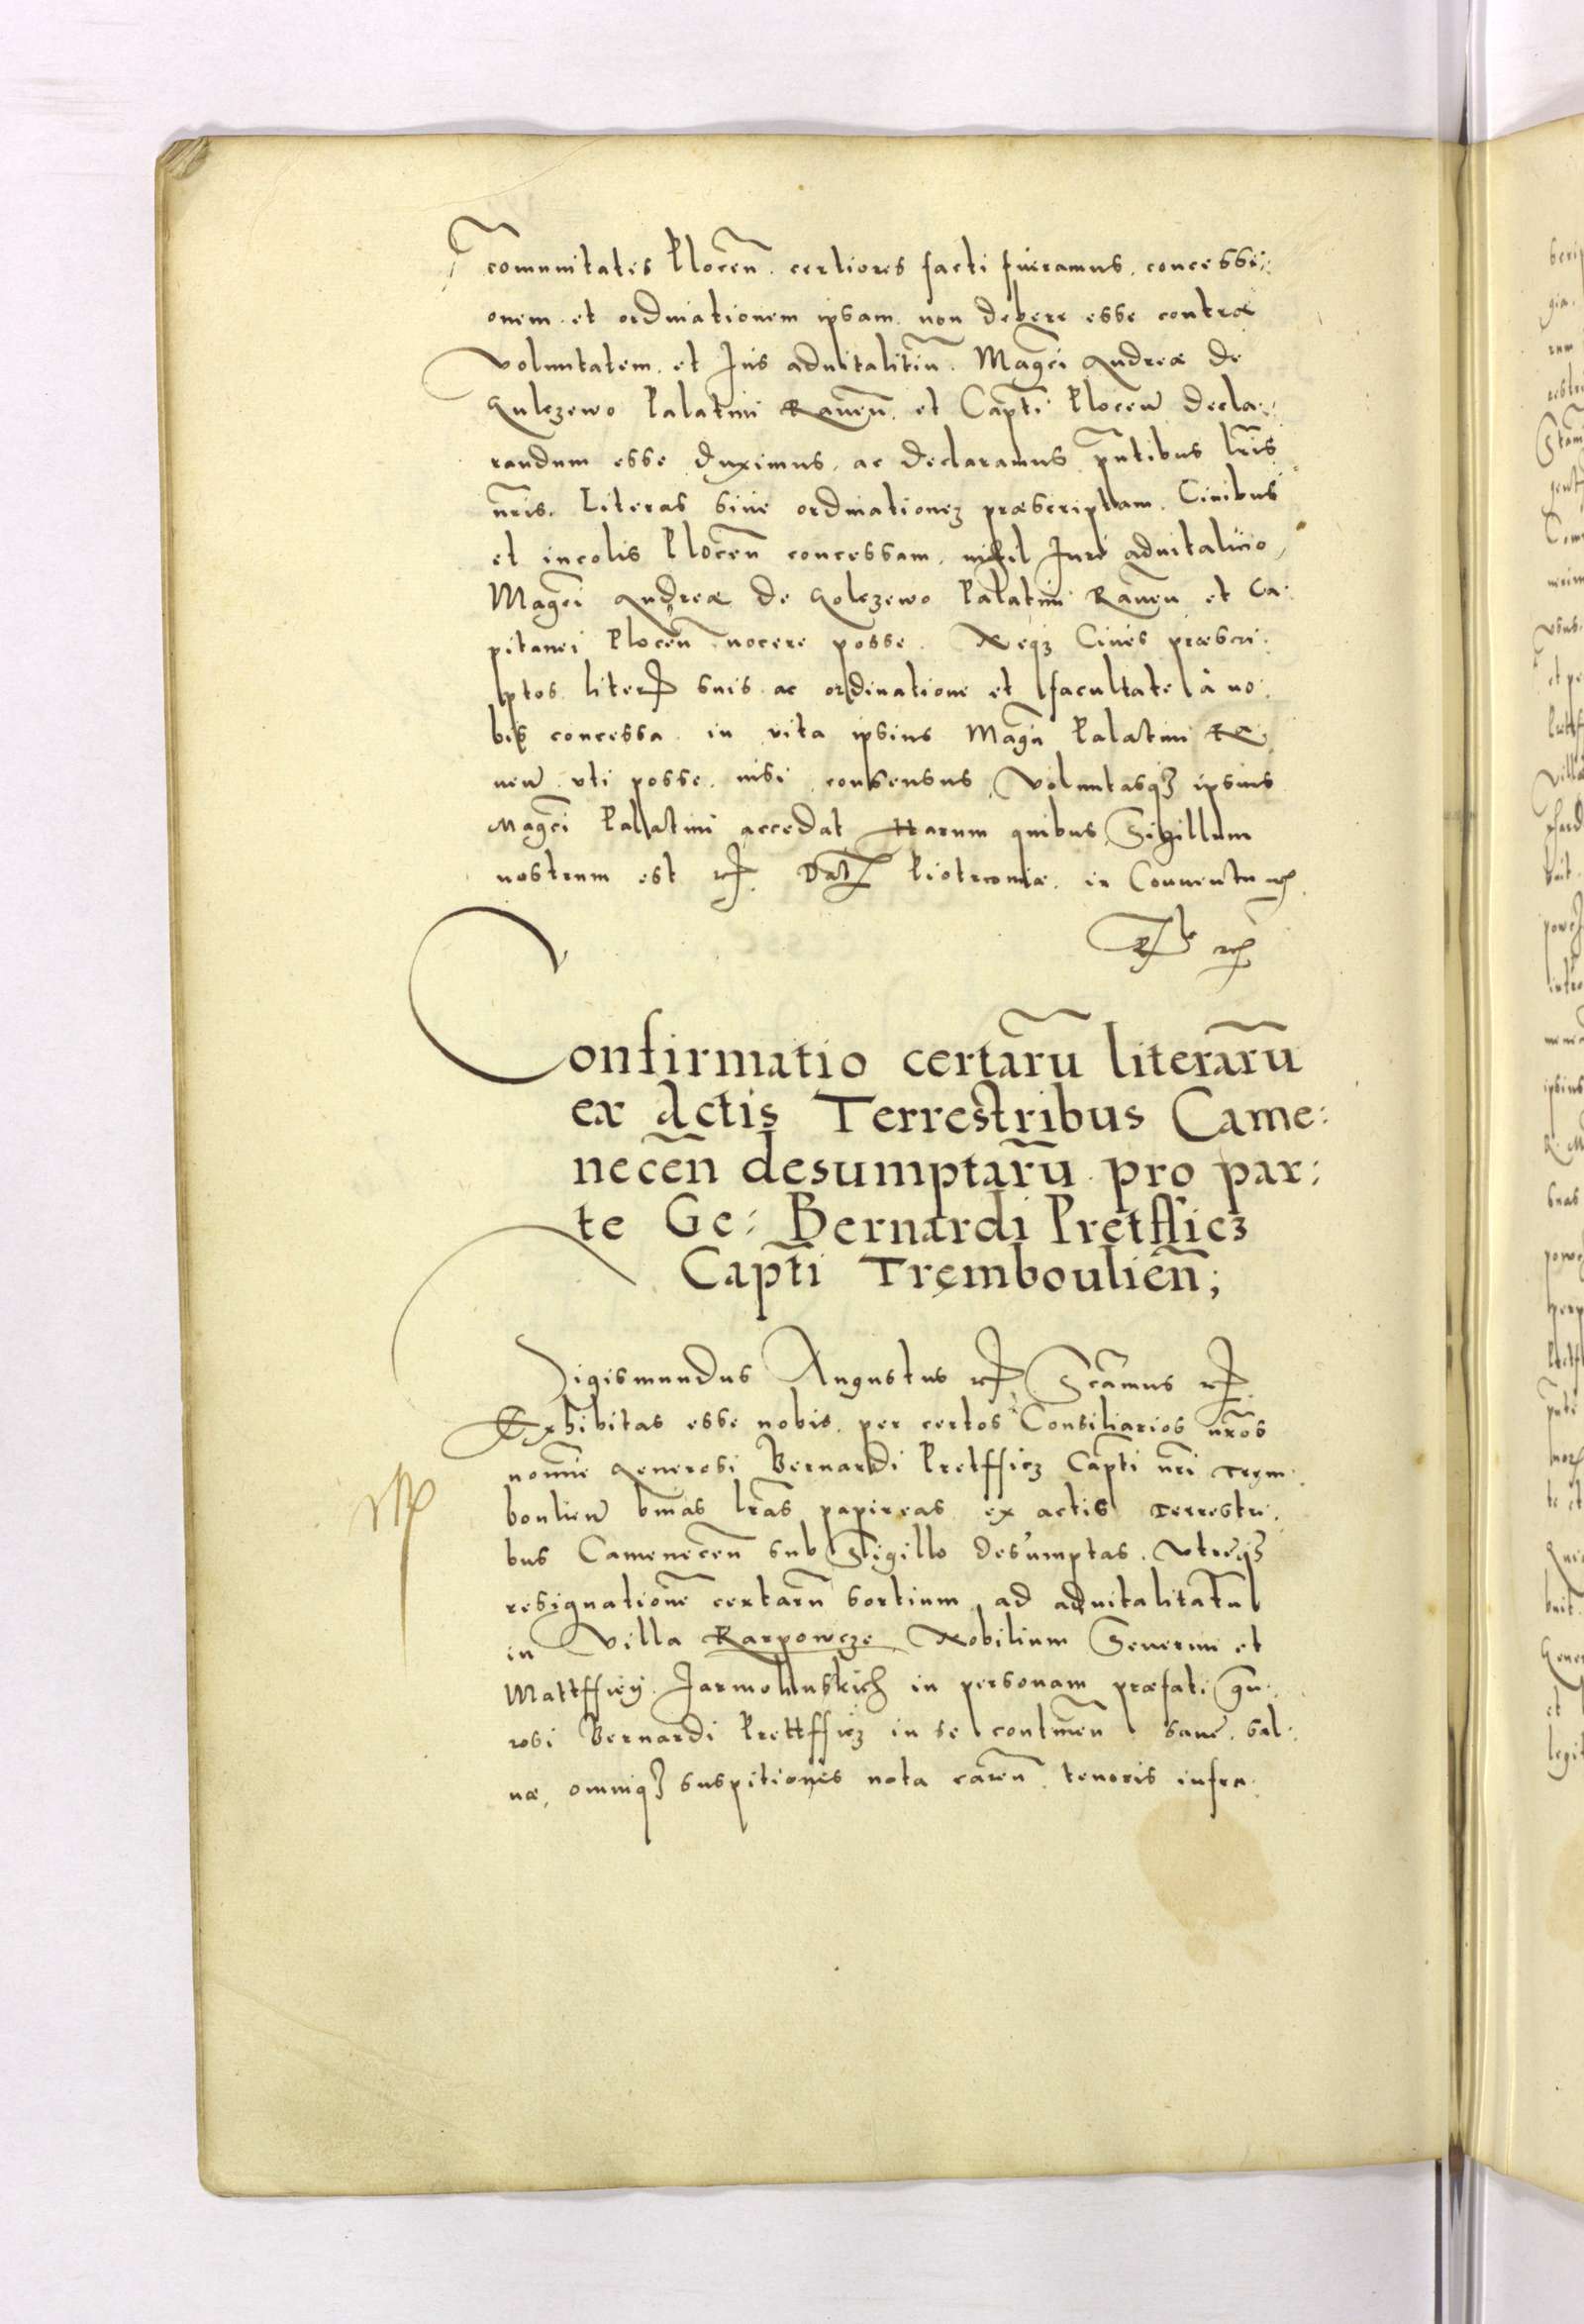 comunitates Plocen̄. certiores facti fueramus. concessi:
onem et ordinationem ipsam non debere esse contra
voluntatem. et Jus aduitalitiū. Magci Andreæ de
Gulczewo Palatini Rauen̄. et Capti Plocen̄ decla:
randum esse duximus. ac declaramus p̄ntibus lr̄is
nr̄is. Literas siue ordinationez præscriptam. Ciuibus
et incolis Plocen̄ concessam. nihil Juri aduitalitio
Magci Andreæ de Golczewo Palatini Rauen̄ et Ca:
pitanei Plocen̄ nocere posse. Neqꝫ Ciues præscri:
ptos literis suis ac ordinatione et facultate à no:
bis concessa in vita ipsius Magci Palatini Ra:
uen̄ vti posse. nisi consensus voluntasqꝫ ipsius
Magci Palatini accedat Harum quibus Sigillum
nostrum est etc. Dat. Piotrcouiæ. in Conuentu etc.
Confirmatio certarū literarū
ex Actis Terrestribus Came:
necen̄ desumptarū pro par:
te Ge: Bernardi Pretfficz
Capti Tremboulien̄;
Sigismundus Augustus etc. Sc̄amus etc.
Exhibitas esse nobis. per certos Consiliarios nr̄os
nomīe Generosi Bernardi Pretfficz Capti nr̄i Trem:
boulien̄ binas lr̄as papireas ex actis Terrestri:
bus Camenecen̄ sub Sigillo desumptas. Vtrasqꝫ
resignationē certarū sortium ad aduitalitatū
in Villa Karpowcze Nobilium Seuerini et
Mattffiey Jarmolinskich in personam præfati Gn̄:
rosi Bernardi Prettfficz in se continen̄ sanas. sal:
uas, omniqꝫ suspitionis nota caren̄. tenoris infra: